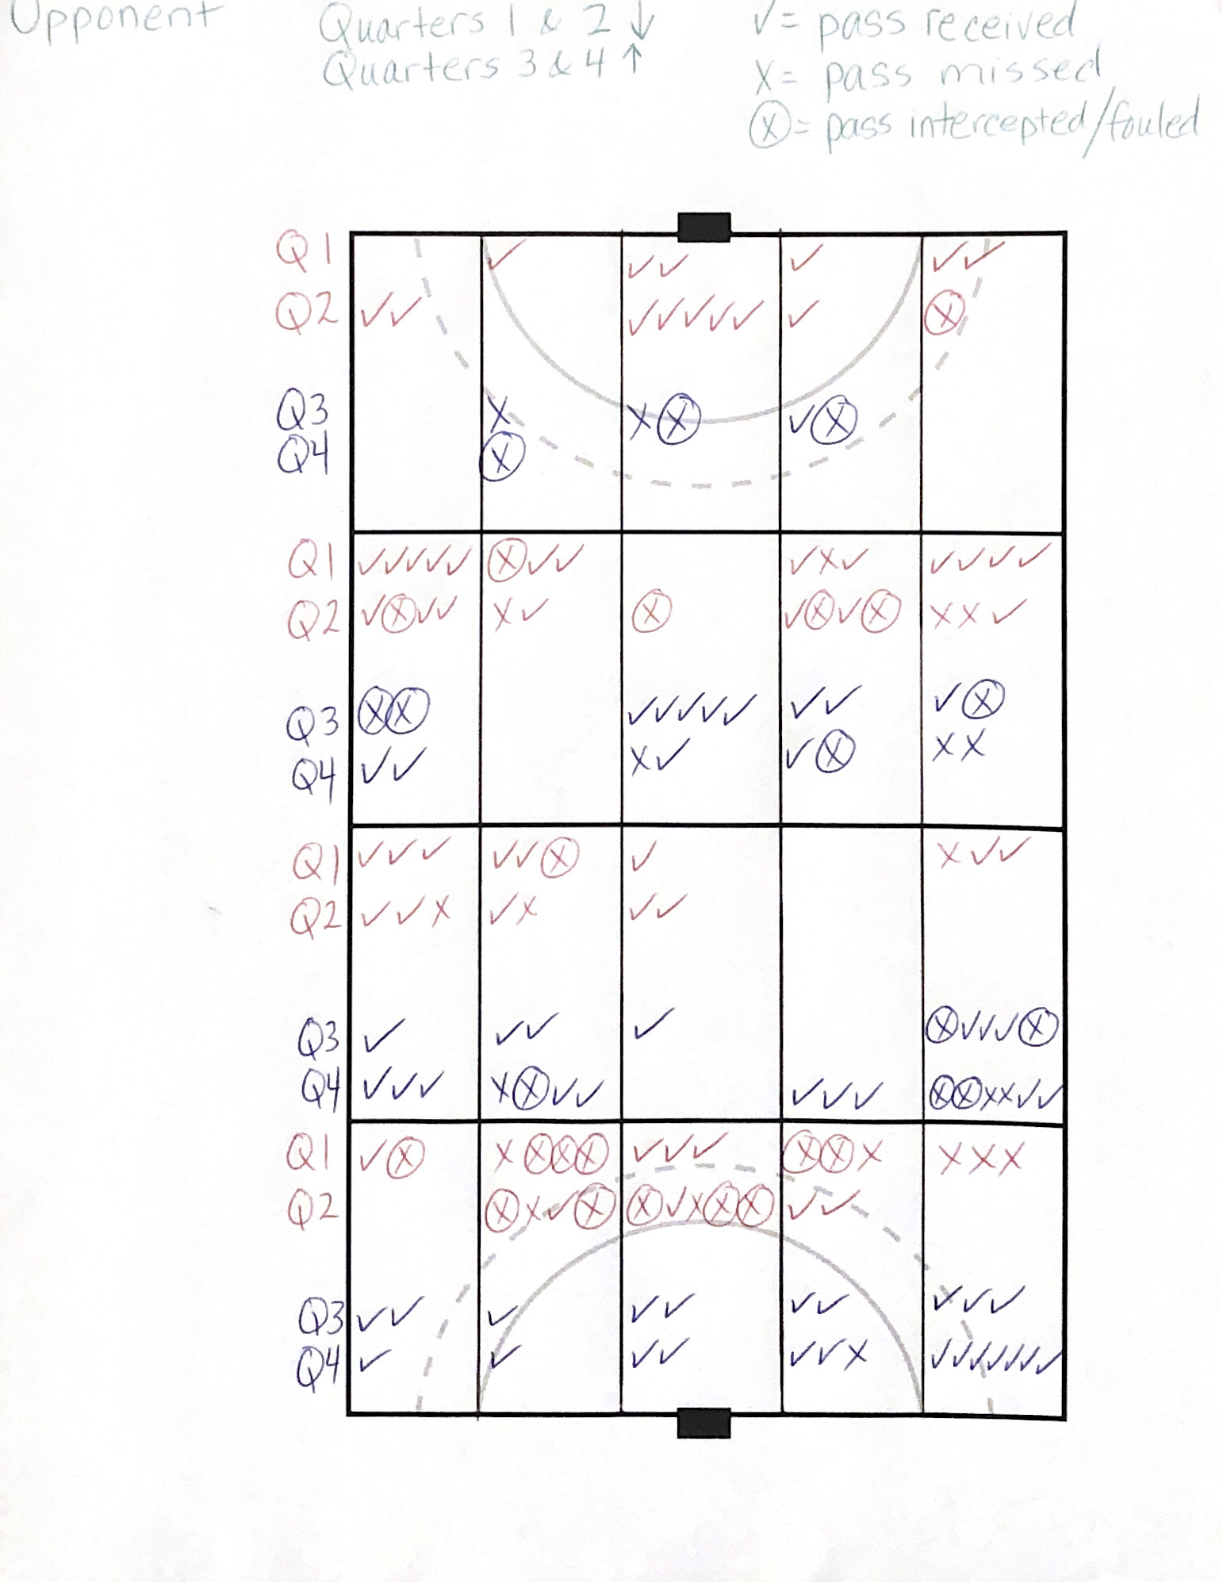 Opponent
Quarters 1 & 2 ↓
Quarters 3 & 4 ↑
✓= pass received
X= pass missed
ⓧ= pass intercepted/fouled
Q1 ✓ ✓✓ ✓ ✓✓
Q2 ✓✓ ✓✓✓✓✓ ✓ ⓧ
Q3 X Xⓧ ✓ⓧ
Q4 ⓧ
Q1 ✓✓✓✓✓ ⓧ✓✓ ✓X✓ ✓✓✓✓
Q2 ✓ⓧ✓✓ X✓ ⓧ ✓ⓧ✓ⓧ XX✓
Q3 ⓧⓧ ✓✓✓✓✓ ✓✓ ✓ⓧ
Q4 ✓✓ X✓ ✓ⓧ XX
Q1 ✓✓✓ ✓✓ⓧ ✓ X✓✓
Q2 ✓✓X ✓X ✓✓
Q3 ✓ ✓✓ ✓ ⓧ✓✓✓ⓧ
Q4 ✓✓✓ Xⓧ✓✓ ✓✓✓ ⓧⓧXX✓✓
Q1 ✓ⓧ Xⓧⓧⓧ ✓✓✓ ⓧⓧX XXX
Q2 ⓧX✓ⓧ ⓧ✓Xⓧⓧ ✓✓
Q3 ✓✓ ✓ ✓✓ ✓✓ ✓✓✓
Q4 ✓ ✓ ✓✓ ✓✓X ✓✓✓✓✓✓